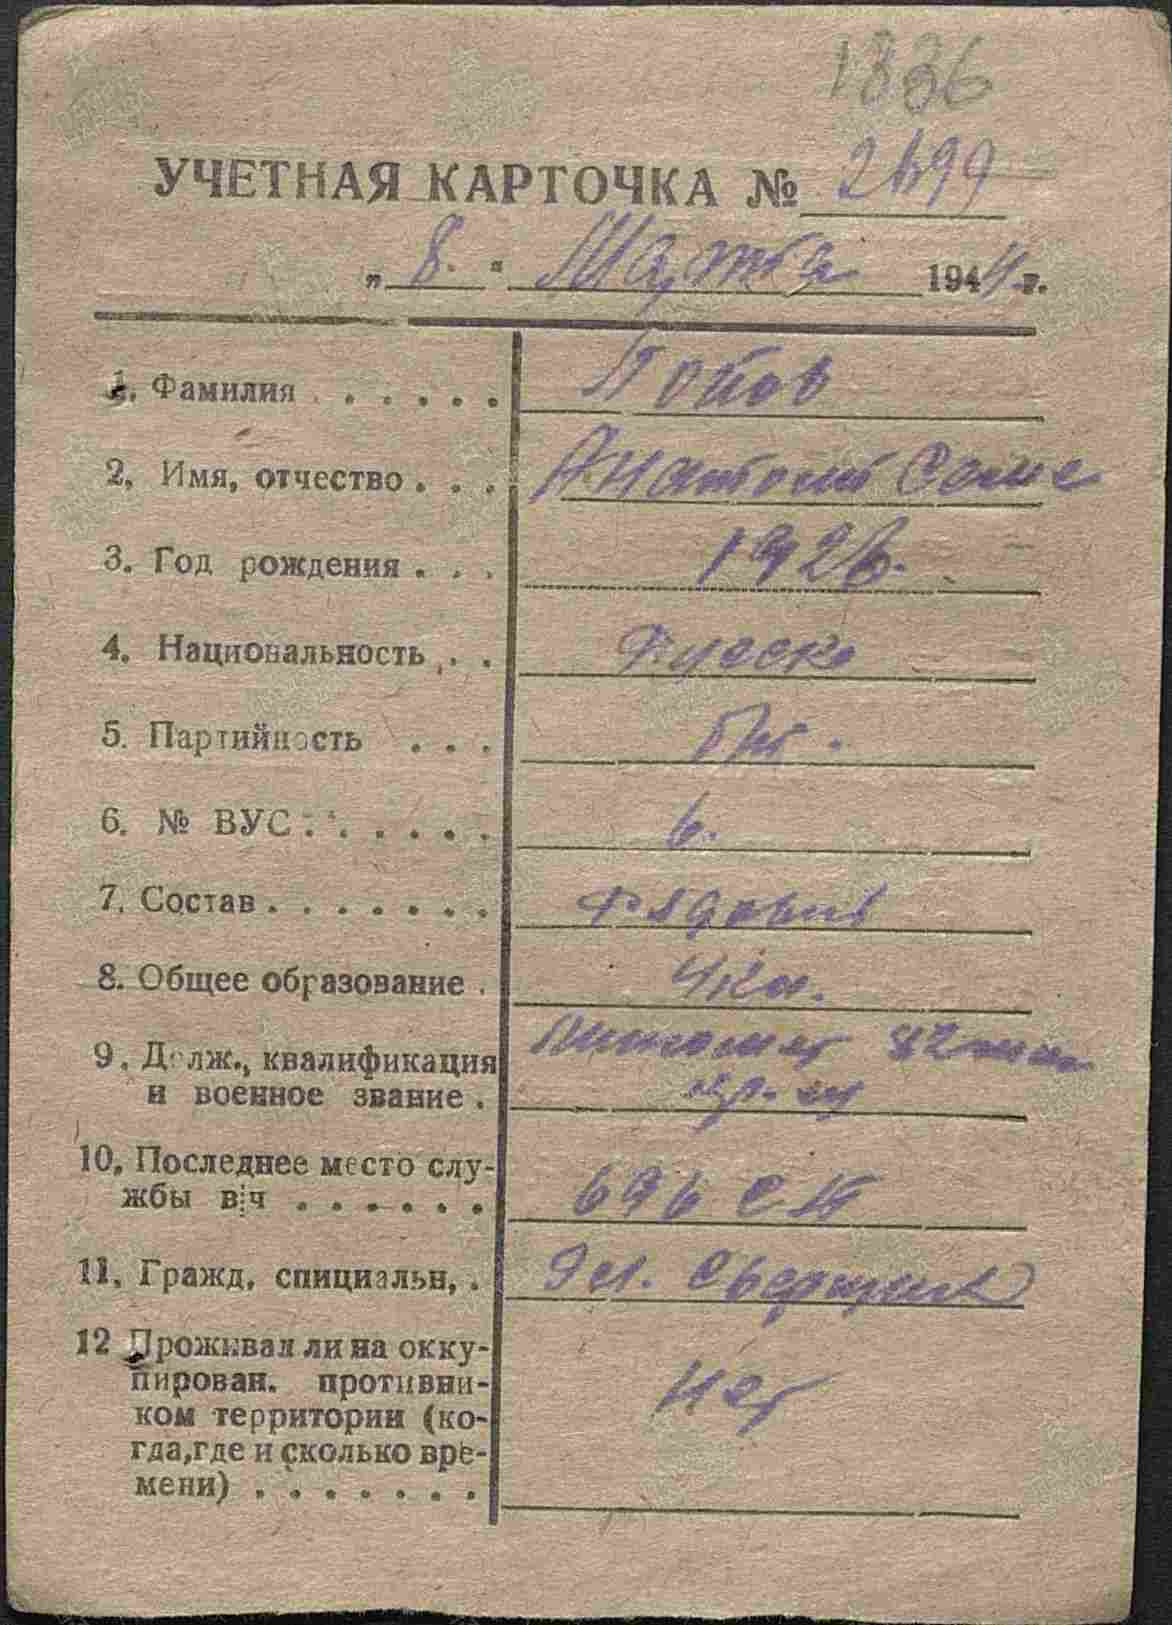 1836
УЧЕТНАЯ КАРТОЧКА № 2699
„ 8. “ Марта 1944 г.
1. Фамилия . . . . . . Попов
2. Имя, отчество . . . Анатолий
3. Год рождения . . . 1926.
4. Национальность . . Русск
5. Партийность . . .
6. № ВУС . . . . . . 6.
7. Состав . . . . . . . Рядовой
8. Общее образование . 4 кл.
9. Долж., квалификация Миномет 82 мм
и военное звание .
10. Последнее место слу-
жбы в/ч . . . . . . 696 СП
11. Гражд. спициальн. . Эл. Сварщик
12 Проживал ли на окку-
пирован. противни-
ком территории (ко- Нет
гда,где и сколько вре-
мени) . . . . . . .